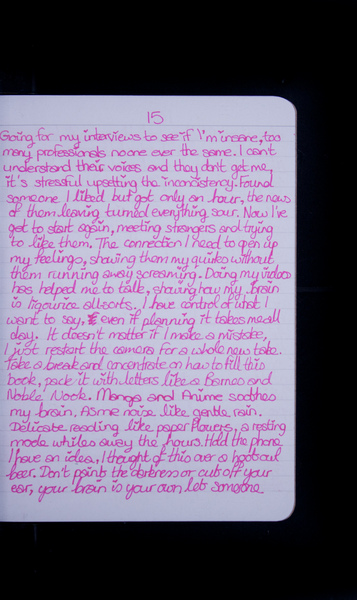 15
Going for my interviews to see if I'm insane, too
many professionals no one ever the same. I can't
understand their voices and they don't get me,
it's stressful upsetting the inconsistency. Found
someone I liked but got only an hour, the news
of them leaving turned everything sour. Now I've
got to start again, meeting strangers and trying
to like them. The connection I need to open up
my feelings, showing them my quirks without
them running away screaming. Doing my videos
has helped me to talk, showing how my brain
is liquorice allsorts. I have control of what I
want to say, even if planning it takes me all
day. It doesn't matter if I make a mistake,
I just restart the camera for a whole new take.
Take a break and concentrate on how to fill this
book, pack it with letters like a Barnes and
Noble Nook. Manga and Anime soothes
my brain, Asmr noise like gentle rain.
Delicate reading like paper flowers, a resting
mode whiles away the hours. Hold the phone
I have an idea, I thought of this over a hoot owl
beer. Don't paint the darkness or cut off your
ear, your brain is your own let someone